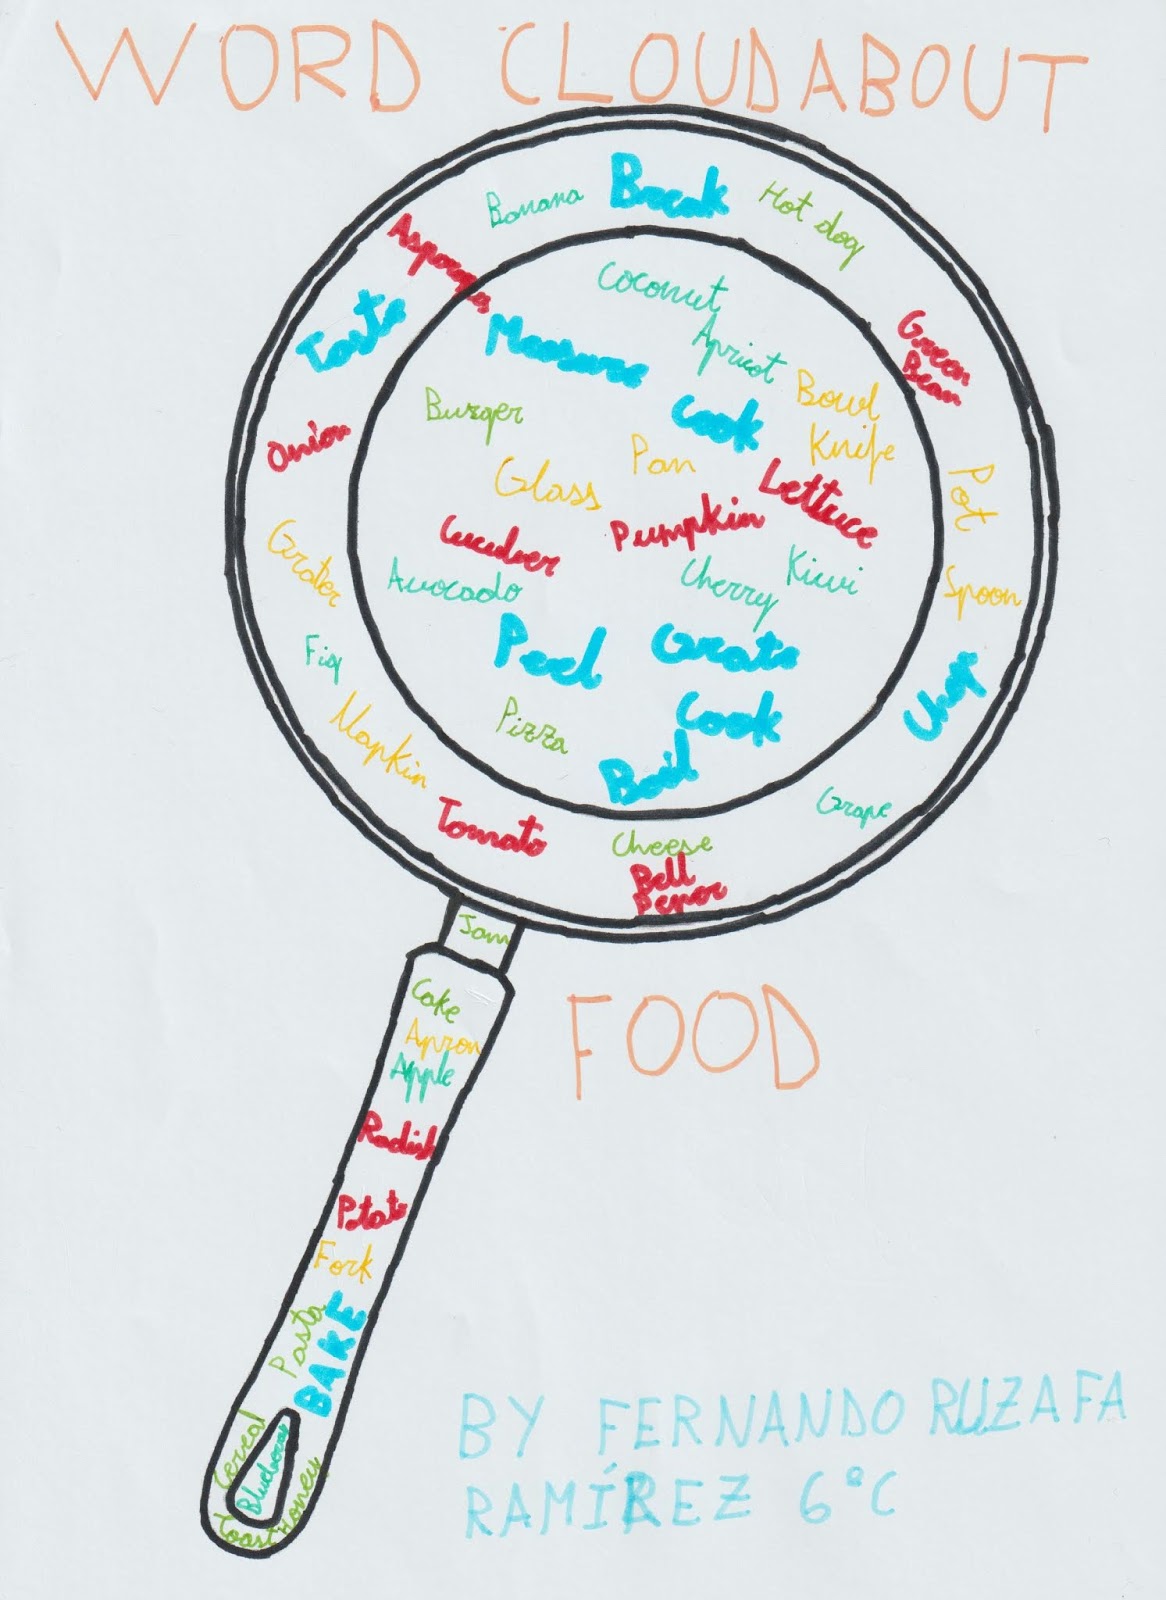 WORD CLOUD ABOUT
Banana
Break
Hot dog
Taste
Coconut
Measure
Apricot
Green
Bean
Burger
Cook
Bowl
Knife
Onion
Pan
Glass
Lettuce
Pot
Pumpkin
Grater
Avocado
Cherry
Kiwi
Spoon
Fig
Peel
Grate
Chop
Napkin
Pizza
Cook
Boil
Grape
Tomato
Cheese
Bell
Jam
Cake
Apron
Apple
FOOD
Radish
Potato
Fork
Pasta
BAKE
Cereal
Honey
Toast
BY FERNANDO RUZAFA
RAMÍREZ 6°C